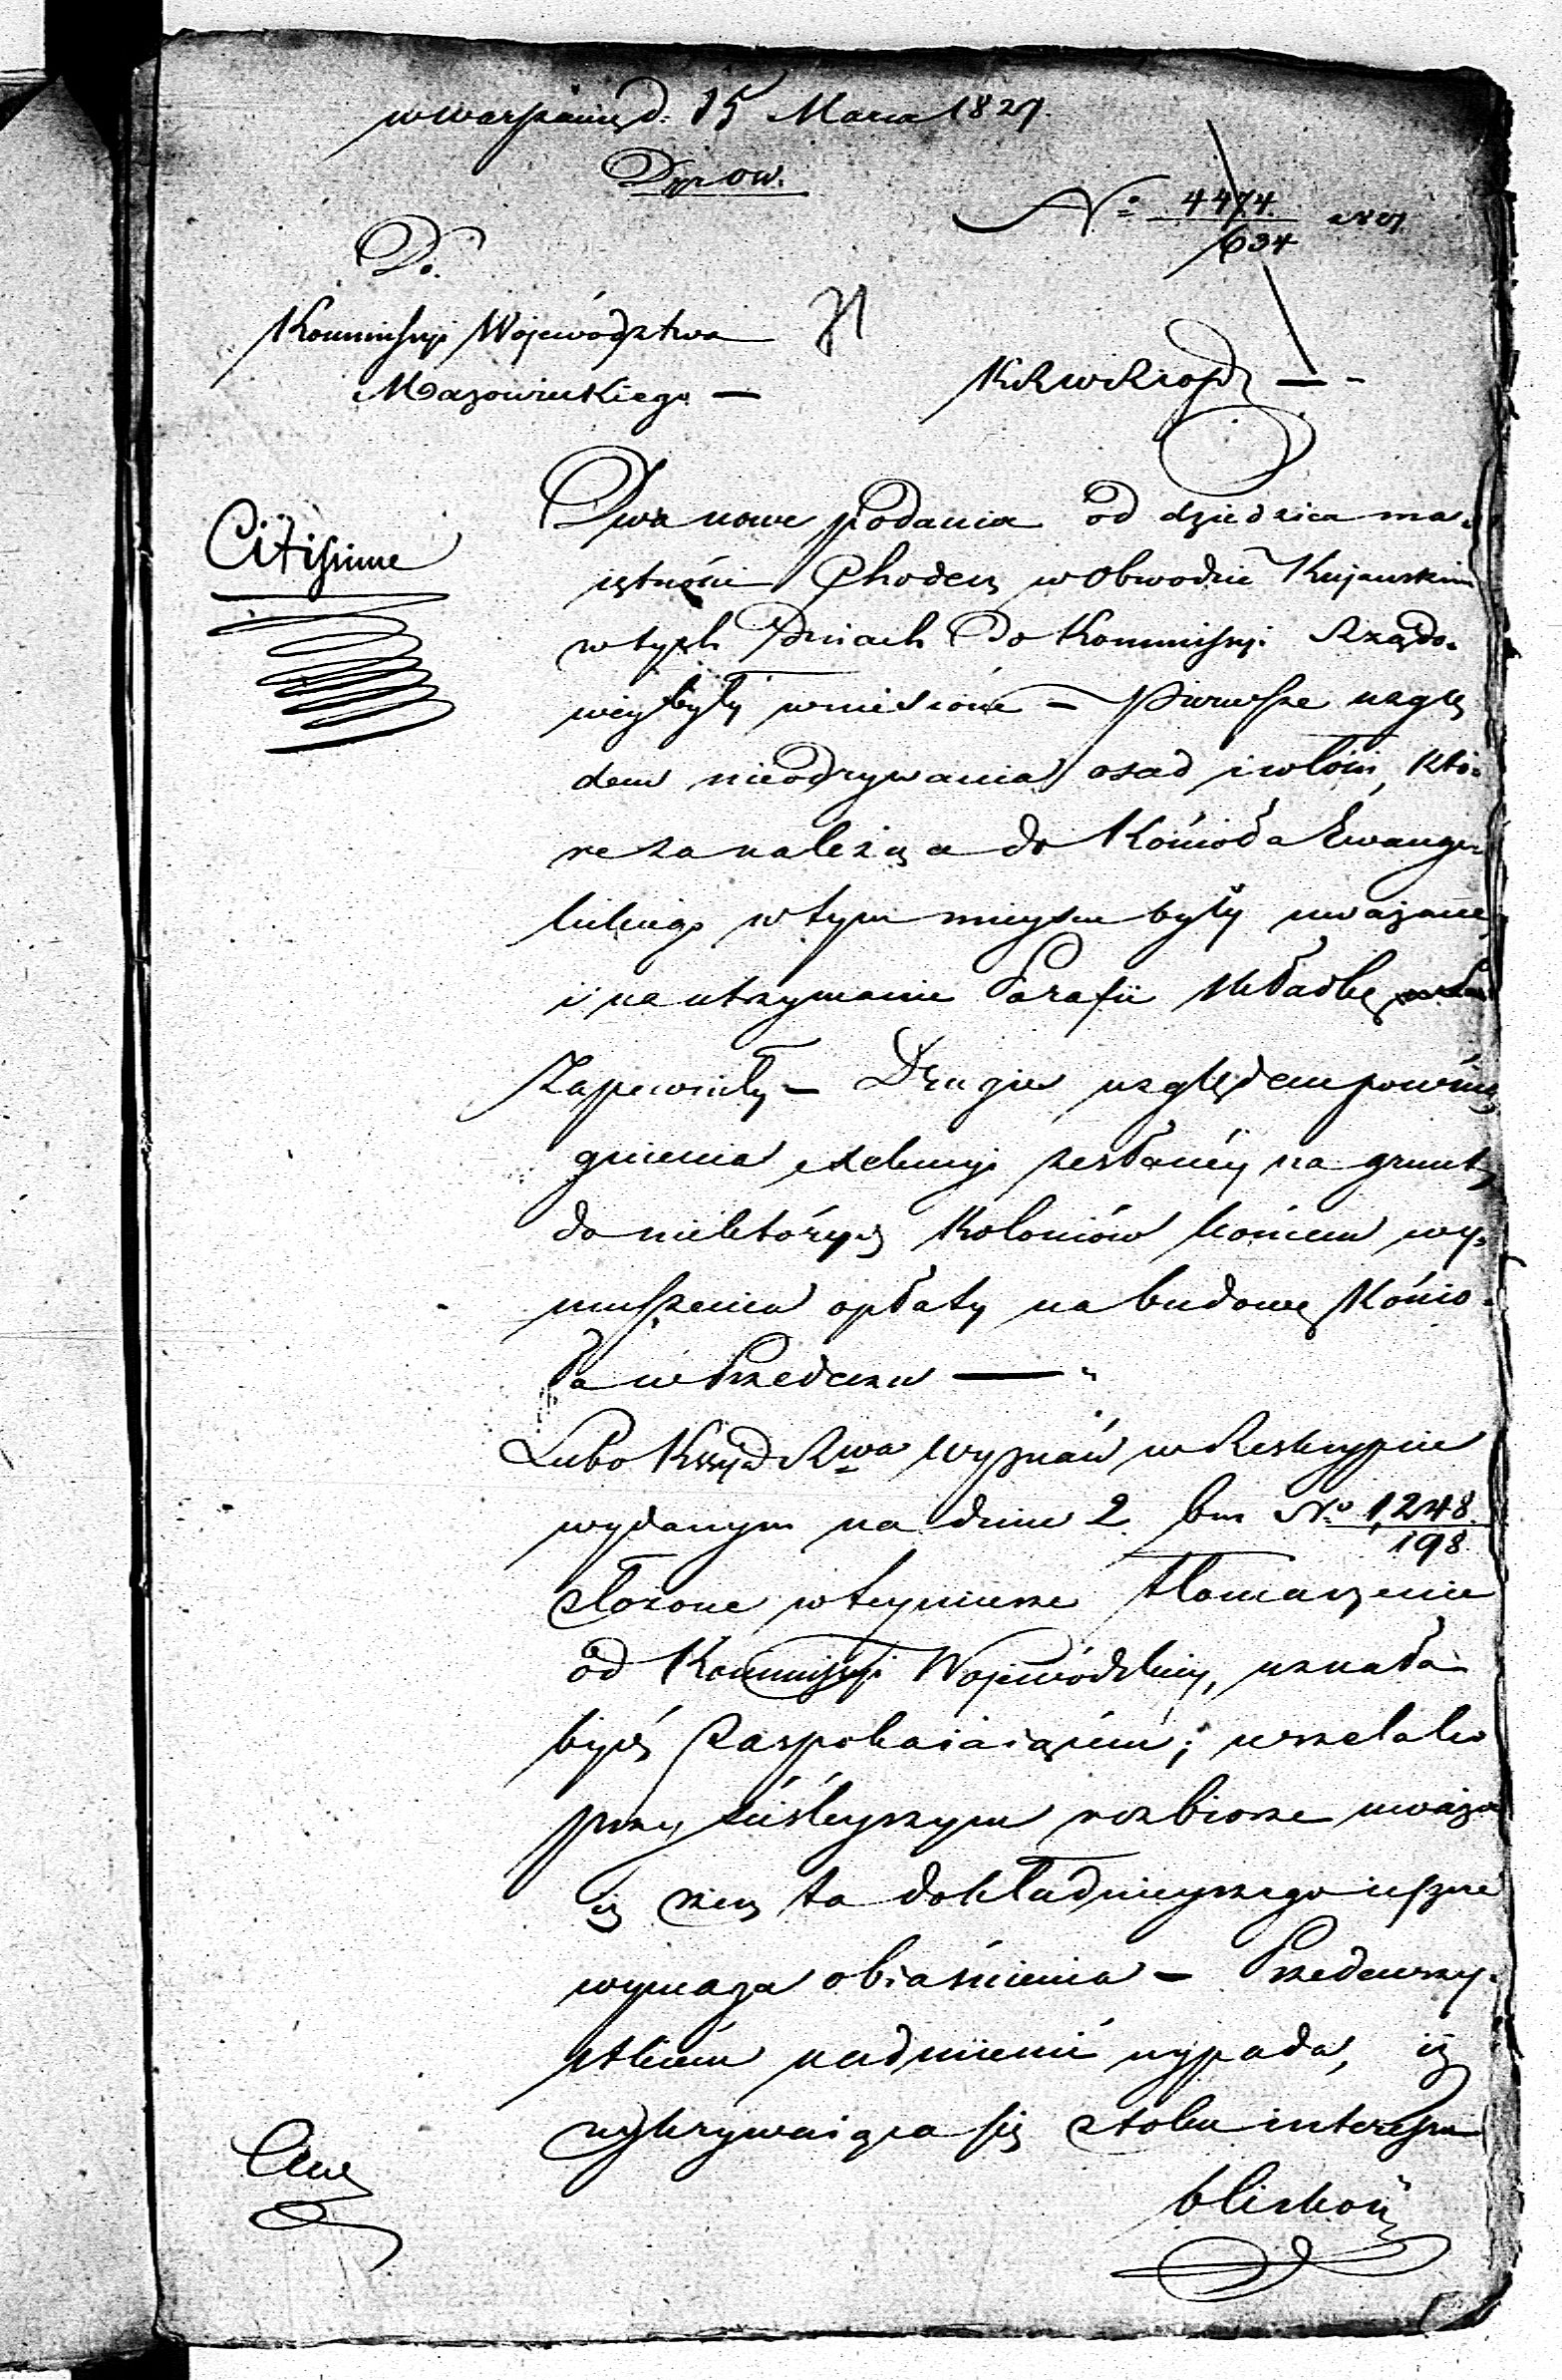 w Warszawie d. 15 Marca 1827.
Dyrow.
No 4474/634 1827
Do
Kommissyi Województwa
Mazowieckiego —
KRWRiOP —
Citissime
Dwa nowe podania od dziedzica ma-
iętności Chodecz w Obwodzie Kujawskim
w tych dniach do Kommissyi Rządo-
wey były wniesione — Pierwsze wzglę
dem nieodrywania osad i włości, któ-
re za należące do Kościoła Ewange-
lickiego w tym mieyscu były uważane
i na utrzymanie Parafii składkę
zapewniły — Drugie względem powścią
gnienia exekucyi zesłanéy na grunt
do niektórych Koloniów końcem wy-
muszenia opłaty na budowę Kościo-
ła w Przedeczu —
Lubo KRzząd Rwa Wyznań w Reskrypcie
wydanym na dniu 2 bm No 1,248/198
złożone w teymierze tłomaczenie
od Kommissyi Woiewódzkiey, uznała
być zaspokaiaiącem; wszelako
przy ściśleyszym rozbiorze uważa
iż rzecz ta dokładnieyszego ieszcze
wymaga obiaśnienia — Przedewszy-
stkiém nadmienić wypada, iż
wykrywaiąca się z toku interessu
bliskość